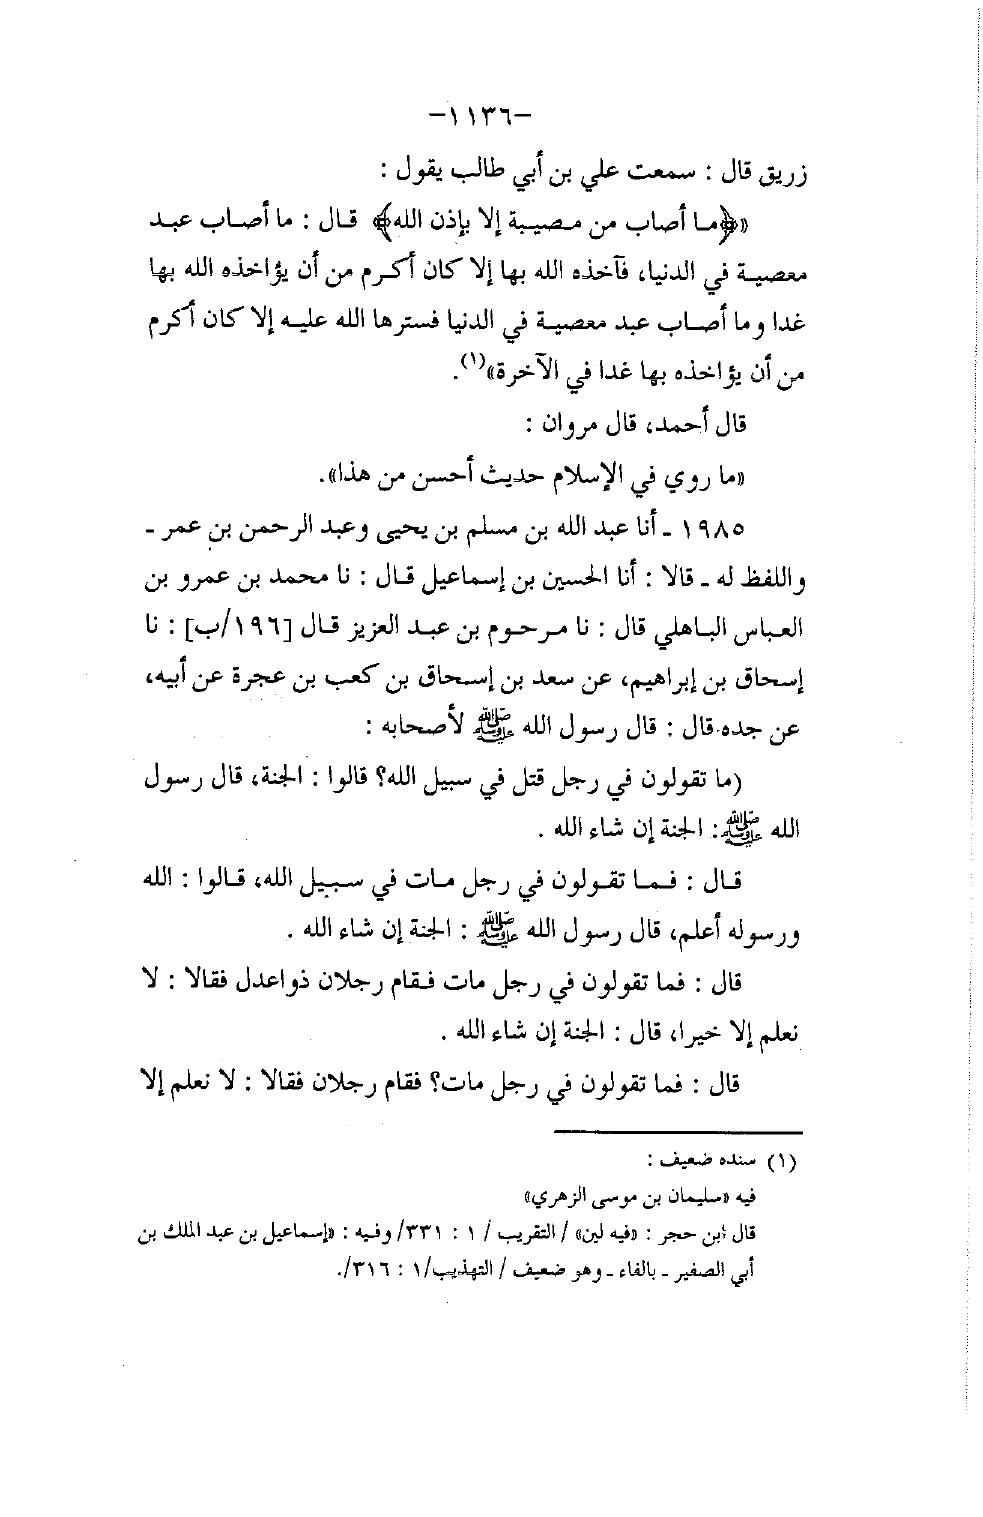 -١١٣٦-
زريق قال : سمعت علي بن أبي طالب يقول :
«﴿ما أصاب من مصيبة إلا بإذن الله﴾ قال : ما أصاب عبد
معصية في الدنيا، فآخذه الله بها إلا كان أكرم من أن يؤاخذه الله بها
غدا وما أصاب عبد معصية في الدنيا فسترها الله عليه إلا كان أكرم
من أن يؤاخذه بها غدا في الآخرة»(١).
قال أحمد، قال مروان :
«ما روي في الإسلام حديث أحسن من هذا».
١٩٨٥ ـ أنا عبد الله بن مسلم بن يحيى وعبد الرحمن بن عمر ـ
واللفظ له ـ قالا : أنا الحسين بن إسماعيل قال : نا محمد بن عمرو بن
العباس الباهلي قال : نا مرحوم بن عبد العزيز قال [١٩٦/ب] : نا
إسحاق بن إبراهيم، عن سعد بن إسحاق بن كعب بن عجرة عن أبيه،
عن جده قال : قال رسول الله ﷺ لأصحابه :
(ما تقولون في رجل قتل في سبيل الله؟ قالوا : الجنة، قال رسول
الله ﷺ: الجنة إن شاء الله .
قال : فما تقولون في رجل مات في سبيل الله، قالوا : الله
ورسوله أعلم، قال رسول الله ﷺ : الجنة إن شاء الله .
قال : فما تقولون في رجل مات فقام رجلان ذوا عدل فقالا : لا
نعلم إلا خيرا، قال : الجنة إن شاء الله .
قال : فما تقولون في رجل مات؟ فقام رجلان فقالا : لا نعلم إلا
(١) سنده ضعيف :
فيه «سليمان بن موسى الزهري»
قال ابن حجر : «فيه لين» / التقريب / ١ : ٣٣١/ وفيه : «إسماعيل بن عبد الملك بن
أبي الصفير ـ بالفاء ـ وهو ضعيف / التهذيب/١ : ٣١٦/.